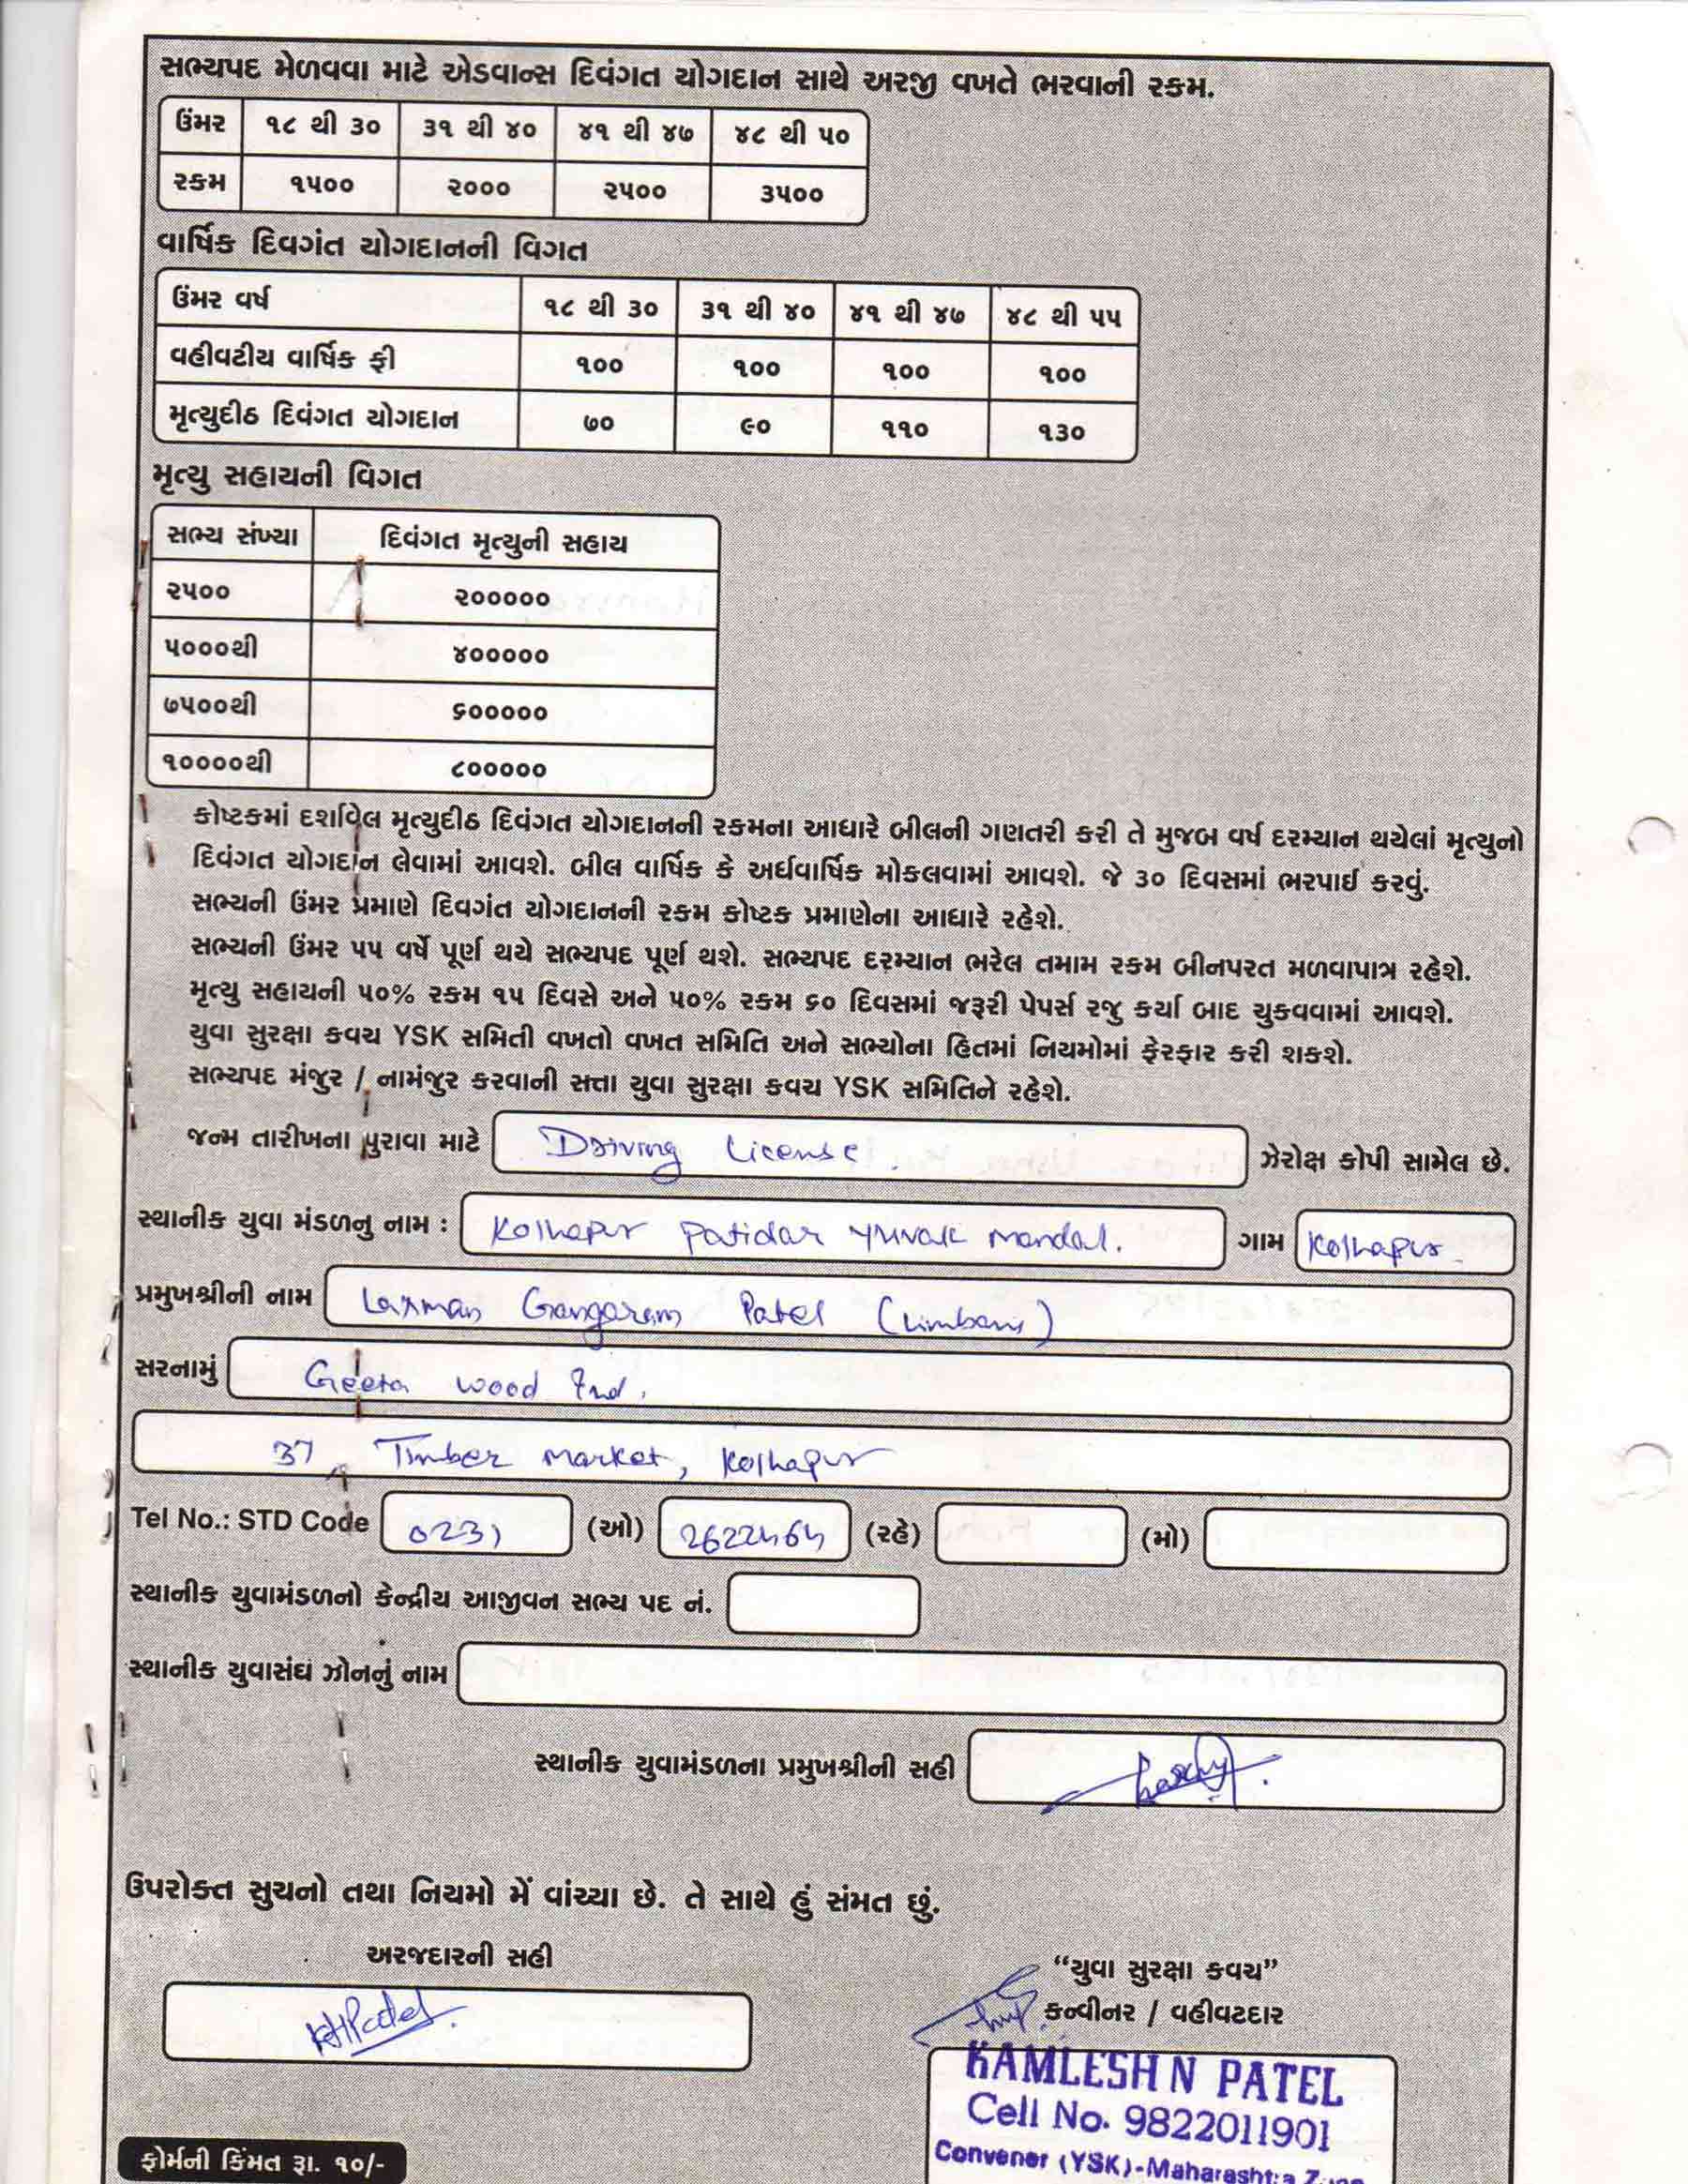 સભ્યપદ મેળવવા માટે એડવાન્સ દિવંગત યોગદાન સાથે અરજી વખતે ભરવાની રકમ.
ઉંમર ૧૮ થી ૩૦ ૩૧ થી ૪૦ ૪૧ થી ૪૭ ૪૮ થી ૫૦
રકમ ૧૫૦૦ ૨૦૦૦ ૨૫૦૦ ૩૫૦૦
વાર્ષિક દિવગંત યોગદાનની વિગત
ઉંમર વર્ષ ૧૮ થી ૩૦ ૩૧ થી ૪૦ ૪૧ થી ૪૭ ૪૮ થી ૫૫
વહીવટીય વાર્ષિક ફી ૧૦૦ ૧૦૦ ૧૦૦ ૧૦૦
મૃત્યુદીઠ દિવંગત યોગદાન ૭૦ ૯૦ ૧૧૦ ૧૩૦
મૃત્યુ સહાયની વિગત
સભ્ય સંખ્યા દિવંગત મૃત્યુની સહાય
૨૫૦૦ ૨૦૦૦૦૦
૫૦૦૦થી ૪૦૦૦૦૦
૭૫૦૦થી ૬૦૦૦૦૦
૧૦૦૦૦થી ૮૦૦૦૦૦
કોષ્ટકમાં દર્શાવેલ મૃત્યુદીઠ દિવંગત યોગદાનની રકમના આધારે બીલની ગણતરી કરી તે મુજબ વર્ષ દરમ્યાન થયેલાં મૃત્યુનો
દિવંગત યોગદાન લેવામાં આવશે. બીલ વાર્ષિક કે અર્ધવાર્ષિક મોકલવામાં આવશે. જે ૩૦ દિવસમાં ભરપાઈ કરવું.
સભ્યની ઉંમર પ્રમાણે દિવગંત યોગદાનની રકમ કોષ્ટક પ્રમાણેના આધારે રહેશે.
સભ્યની ઉંમર ૫૫ વર્ષે પૂર્ણ થયે સભ્યપદ પૂર્ણ થશે. સભ્યપદ દરમ્યાન ભરેલ તમામ રકમ બીનપરત મળવાપાત્ર રહેશે.
મૃત્યુ સહાયની ૫૦% રકમ ૧૫ દિવસે અને ૫૦% રકમ ૬૦ દિવસમાં જરૂરી પેપર્સ રજુ કર્યા બાદ ચુકવવામાં આવશે.
યુવા સુરક્ષા કવચ YSK સમિતી વખતો વખત સમિતિ અને સભ્યોના હિતમાં નિયમોમાં ફેરફાર કરી શકશે.
સભ્યપદ મંજુર / નામંજુર કરવાની સત્તા યુવા સુરક્ષા કવચ YSK સમિતિને રહેશે.
જન્મ તારીખના પુરાવા માટે Driving License. ઝેરોક્ષ કોપી સામેલ છે.
સ્થાનીક યુવા મંડળનુ નામ : Kolhapur Patidar Yuvak Mandal. ગામ Kolhapur
પ્રમુખશ્રીની નામ Laxman Gangaram Patel (Limbani)
સરનામું Geeta wood Ind.
37, Timber Market, Kolhapur
Tel No.: STD Code 0231 (ઓ) 2622464 (રહે) (મો)
સ્થાનીક યુવામંડળનો કેન્દ્રીય આજીવન સભ્ય પદ નં.
સ્થાનીક યુવાસંઘ ઝોનનું નામ
સ્થાનીક યુવામંડળના પ્રમુખશ્રીની સહી
ઉપરોક્ત સુચનો તથા નિયમો મેં વાંચ્યા છે. તે સાથે હું સંમત છું.
અરજદારની સહી
"યુવા સુરક્ષા કવચ"
કન્વીનર / વહીવટદાર
KAMLESH N PATEL
Cell No. 9822011901
Convener (YSK)-Maharashtra
ફોર્મની કિંમત રૂા. ૧૦/-